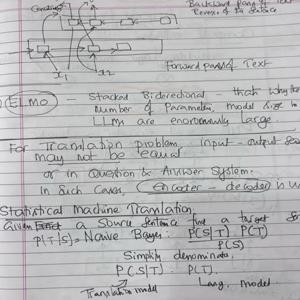 Backward pass of Text
Reverse of the Sentence
x1 x2
Forward pass of Text
ELMO – Stacked Bidirectional – that's why the
Number of Parameters, model size in
LLMs are enormously large
For Translation problem input - output
may not be equal
or in Question & Answer System.
In such Cases, Encoder - decoder is
Statistical Machine Translation
Given a source sentence find a target
P(T|S) = Naive Bayes: P(S|T) P(T)
P(S)
Simplify denominator
P(S|T) . P(T).
Translation model Lang. model